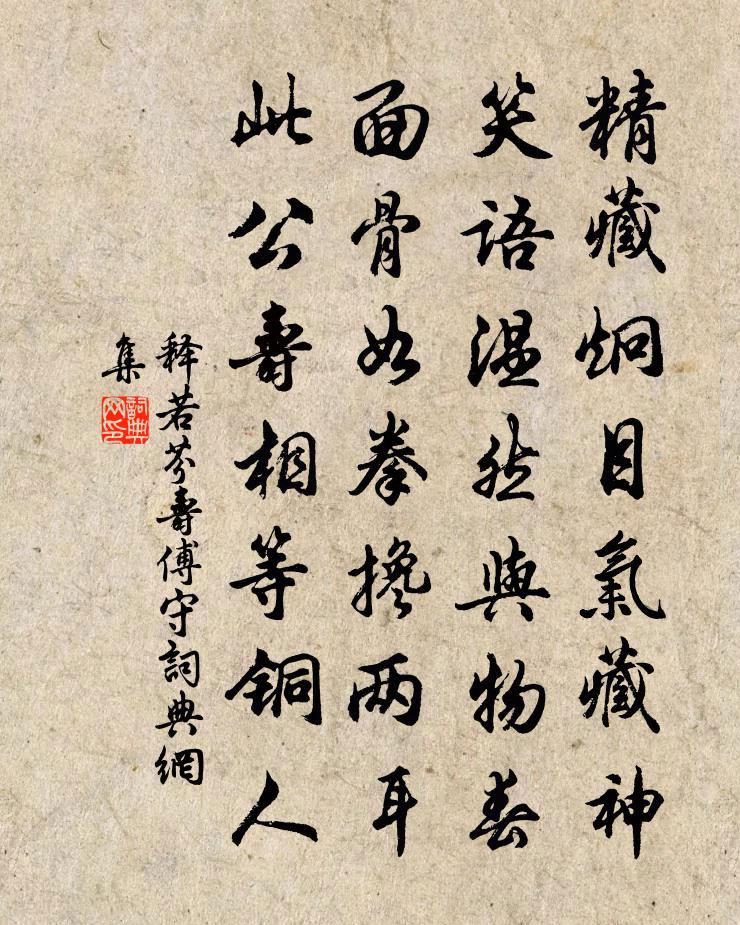 精藏炯目氣藏神
笑语温然與物春
面骨如拳搀两耳
此公壽相等铜人
释若芬壽傅守詞典網
集
詞典
网印